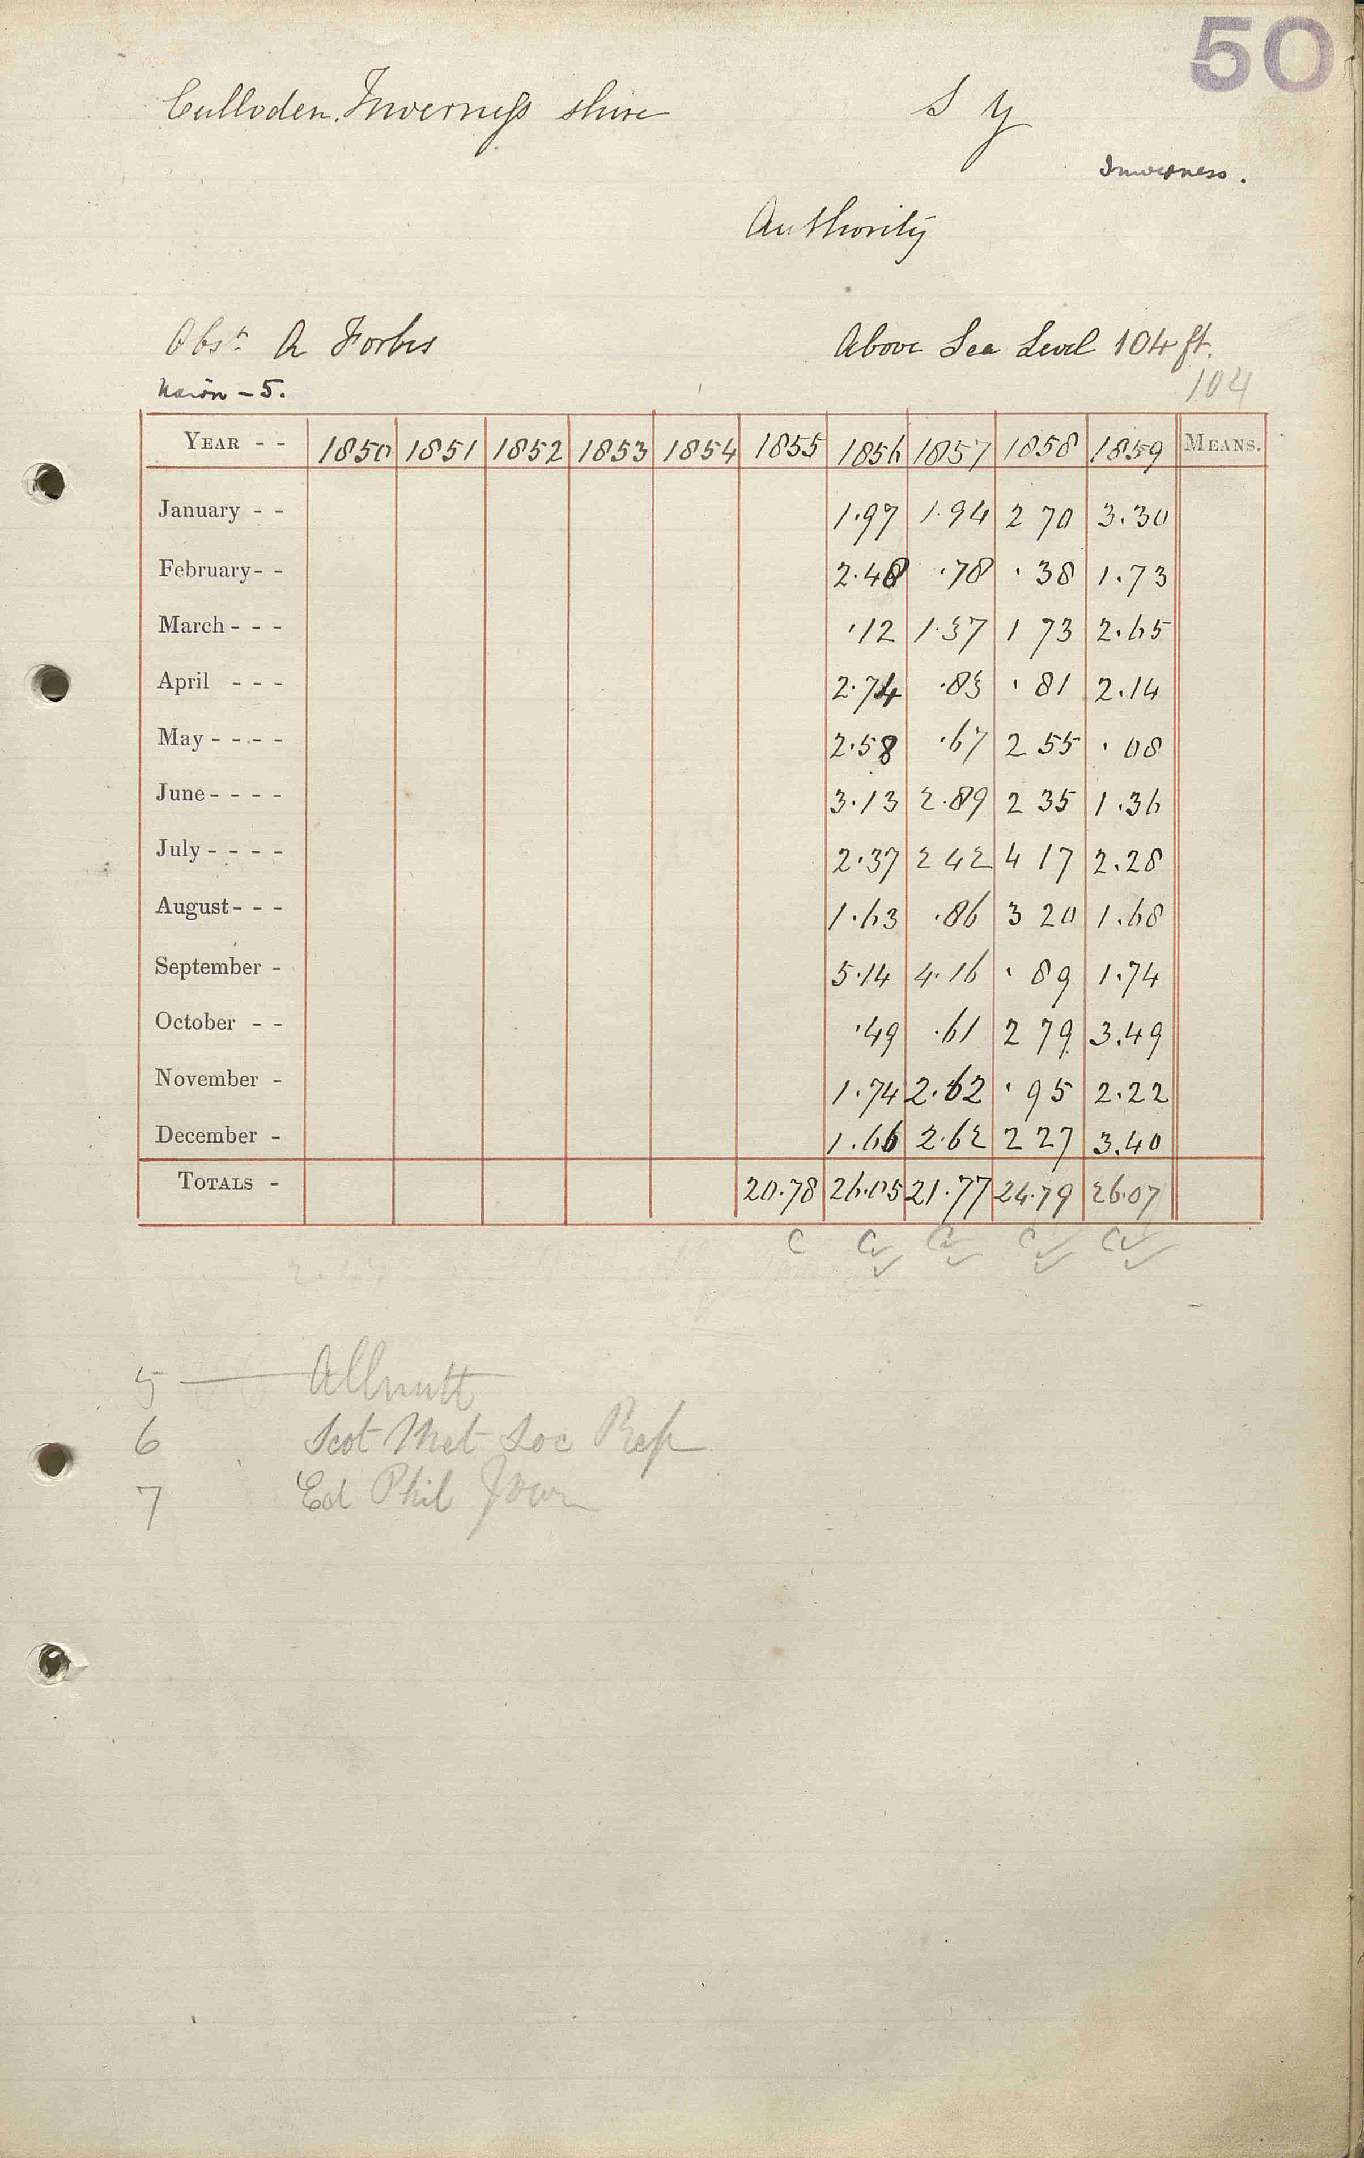 50
Culloden. Inverness shire S Y
Inverness.
Authority
Obsr. A Forbes Above Sea Level 104 ft.
Nairn - 5. 104
YEAR - - 1850 1851 1852 1853 1854 1855 1856 1857 1858 1859 MEANS.
January - - 1.97 1.94 2 70 3.30
February - - 2.48 .78 .38 1.73
March - - - .12 1.37 1 73 2.65
April - - - 2.74 .83 .81 2.14
May - - - - 2.58 .67 2 55 .08
June - - - - 3.13 2.89 2 35 1.36
July - - - - 2.37 2 42 4 17 2.28
August - - - 1.63 .86 3 20 1.68
September - 5.14 4.16 .89 1.74
October - - .49 .61 2 79 3.49
November - 1.74 2.62 .95 2.22
December - 1.66 2.62 2 27 3.40
TOTALS - 20.78 26.05 21.77 24.79 26.07
C C C C C
5 Allnutt
6 Scot Met Soc Rep
7 Ed Phil Journ